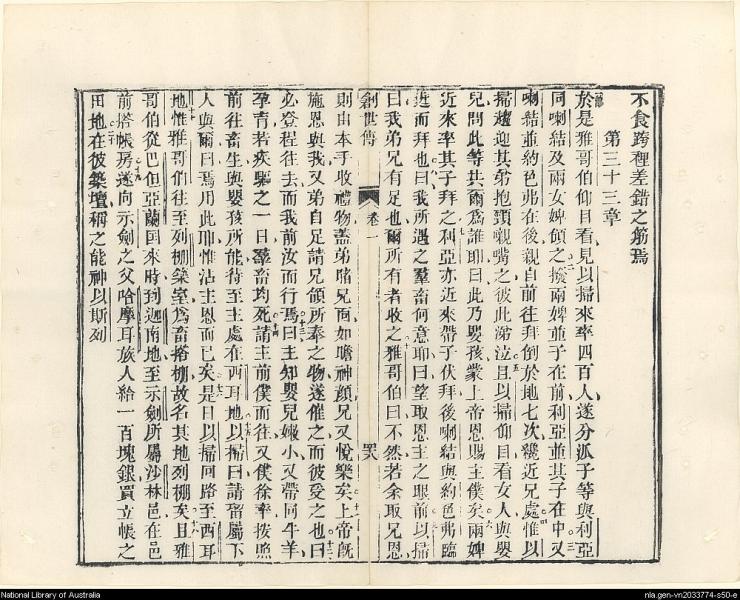 不食跨裡差錯之筋焉
第三十三章
於是雅哥伯仰目看見以掃來率四百人遂分派子等與利亞
同喇結及兩女婢頒之擡兩婢並子在前利亞並其子在中又
喇結並約色弗在後親自前往拜倒於地七次纔近兄處惟以
掃趨迎其弟抱頸親嘴之彼此涕泣且以掃仰目看女人與嬰
兒問此等共爾為誰耶曰此乃嬰孩蒙上帝恩賜主僕矣兩婢
近來率其子拜之利亞亦近來帶子伏拜後喇結與約色弗臨
近而拜也曰我所遇之羣畜何意耶曰望取恩主之眼前以掃
曰我弟兄有足也爾所有者收之雅哥伯曰不然若余取兄恩
創世傳 卷一
則由本手收禮物蓋弟睹兄面如瞻神顏兄又悅樂矣上帝既
施恩與我又弟自足請兄頒所奉之物遂催之而彼受之也曰
必登程往去而我前汝而行焉曰主知嬰兒嫩小又帶同牛羊
孕育若疾驅之一日羣畜均死請主前僕而往又僕徐率按照
前往畜生與嬰孩所能待至主處在西耳地以掃曰請留屬下
人與爾曰焉用此耶惟沾主恩而已矣是日以掃回路至西耳
地惟雅哥伯往至列棚築室為畜搭棚故名其地列棚矣且雅
哥伯從巴但亞蘭回來時到迦南地至示劍所屬沙林邑在邑
前搭帳房遂向示劍之父哈摩耳族人給一百塊銀買立帳之
田地在彼築壇稱之能神以斯列